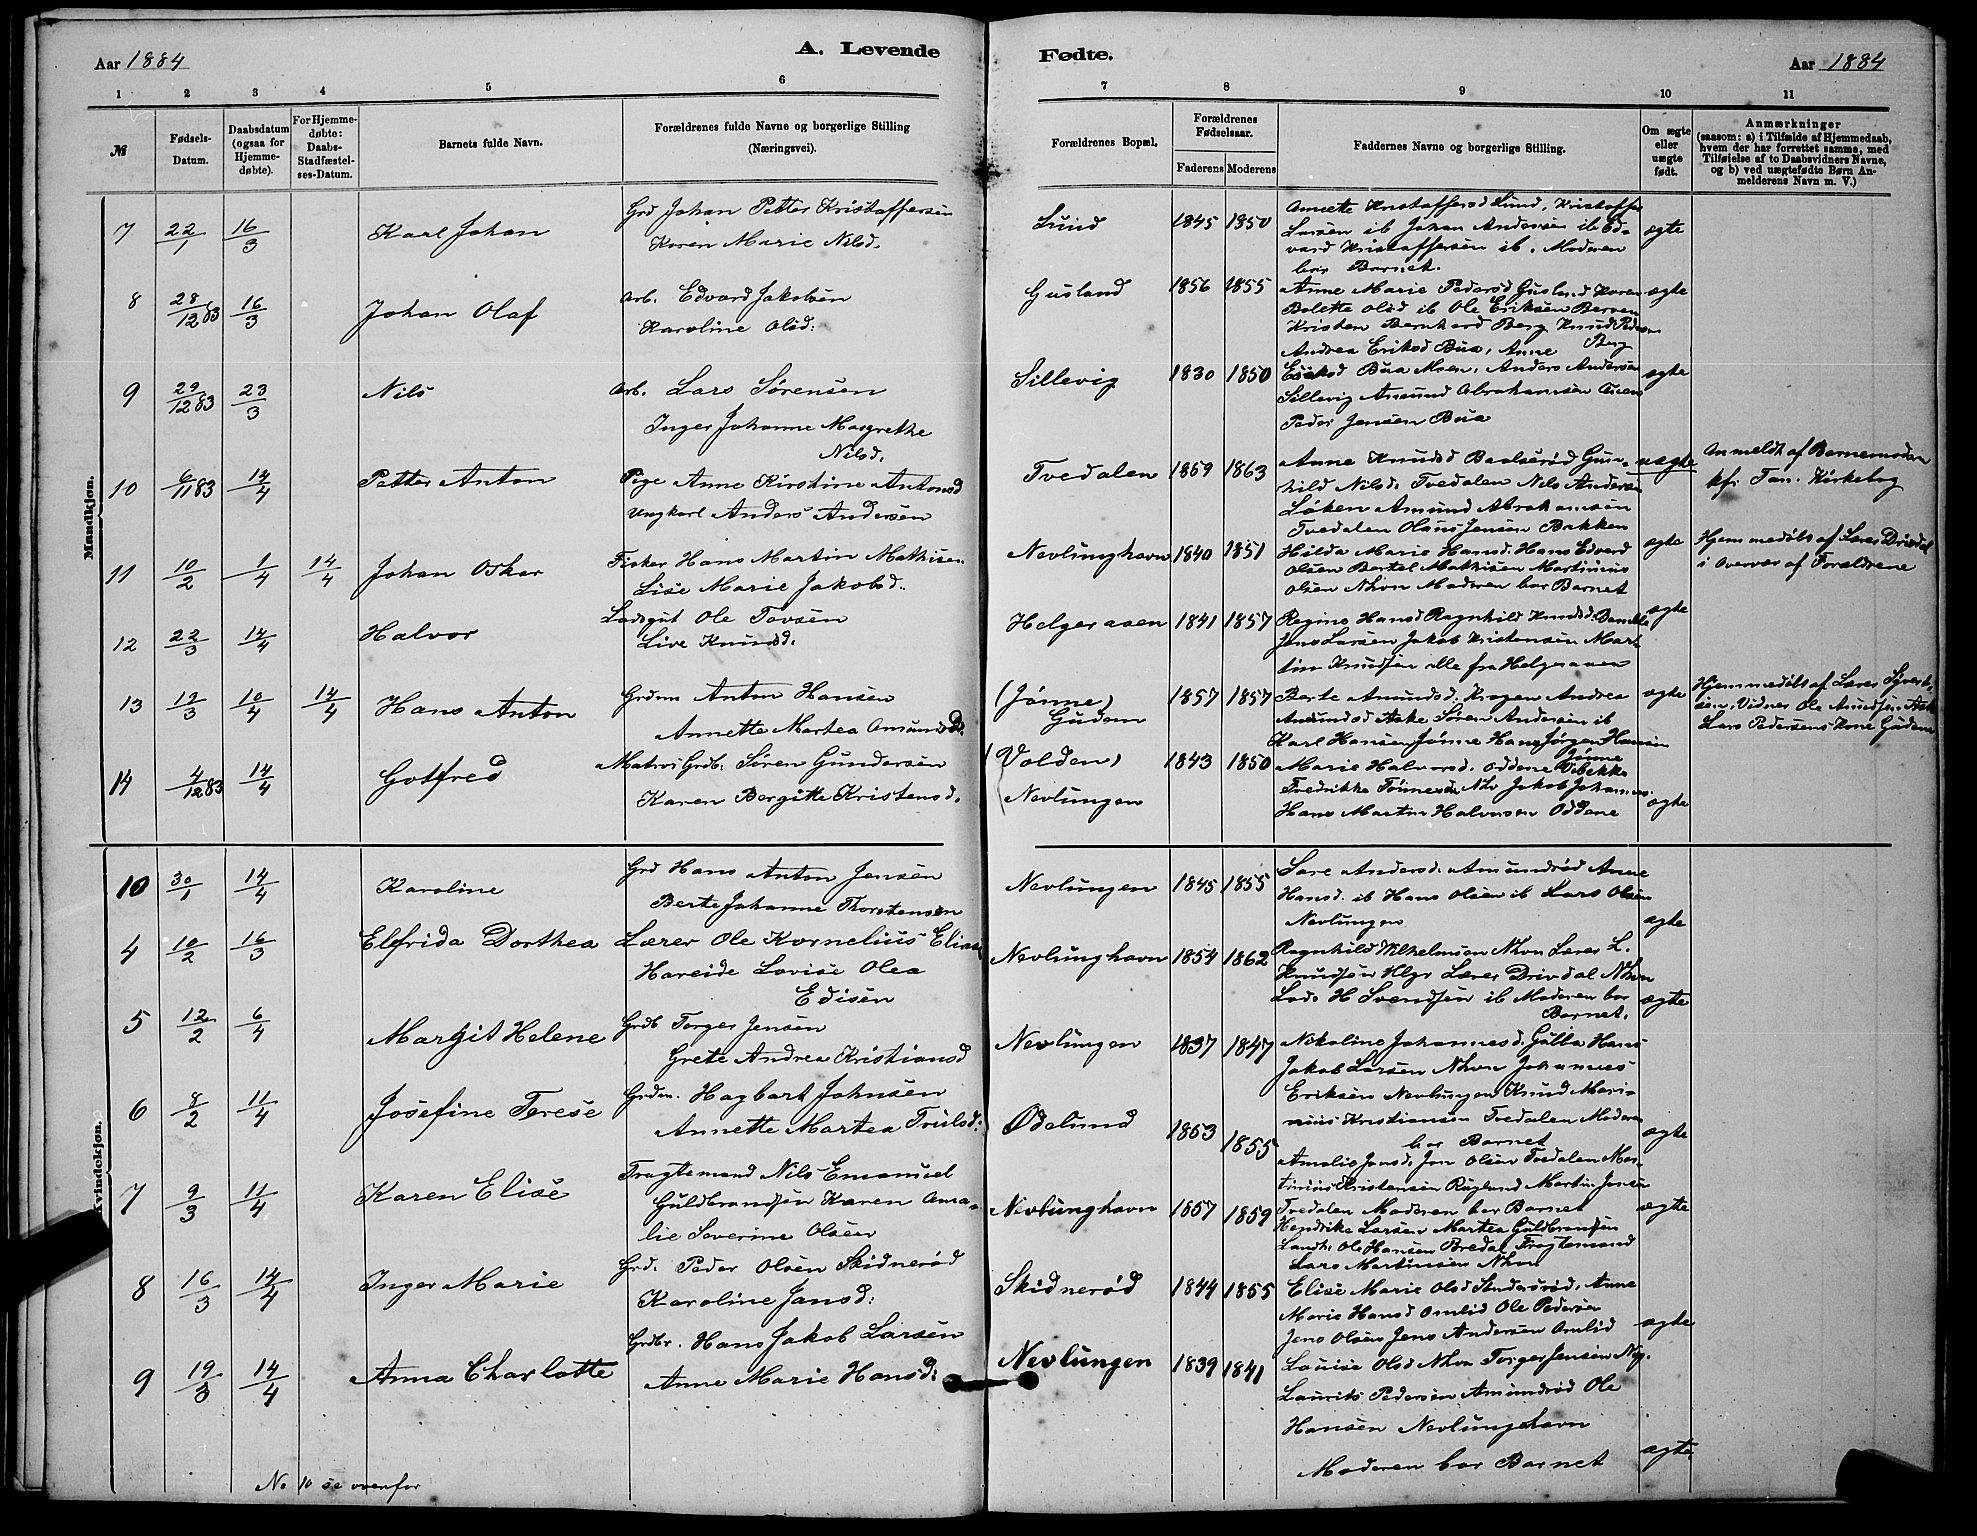 Aar 1884
A. Levende
Fødte.
Aar 1884
1 2 3 4 5 6 7 8 9 10 11
№
Fødsels-Datum.
Daabsdatum (ogsaa for Hjemme-døbte).
For Hjemme-døbte: Daabs-Stadfæstel-ses-Datum.
Barnets fulde Navn.
Forældrenes fulde Navne og borgerlige Stilling (Næringsvei).
Forældrenes Bopæl.
Forældrenes Fødselsaar.
Faderens Moderens
Faddernes Navne og borgerlige Stilling.
Om ægte eller uægte født.
Anmærkninger
(saasom: a) i Tilfælde af Hjemmedaab, hvem der har forrettet samme, med Tilføielse af to Daabsvidners Navne, og b) ved uægtefødte Børn An-melderens Navn m. V.)
Mandkjøn.
7 22/1 16/3 Karl Johan
Grd Johan Petter Kristaffersen
Karen Marie Nilsd.
Lund 1845 1850
Annette Kristaffersd Lund, Kristaffer
Larsen ib Johan Andersen ib Ed-
vard Kristaffersen ib. Moderen
bar Barnet.
ægte
8 28/12 83 16/3 Johan Olaf
Arb. Edvard Jakobsen
Karoline Olsd:
Gusland 1856 1855
Anne Marie Pedersd Gusland Karen
Bolette Olsd ib Ole Eriksen Berven
Kristen Bernhard Berg Knud Pedersen
Berg
ægte
9 29/12 83 23/3 Nils
Arb. Lars Sørensen
Inger Johanne Margrethe
Nilsd.
Sillevig 1830 1850
Andrea Eriksd Bua, Anne
Eriksd Bua Anders Andersen
Sillevig Amund Abrahamsen
Peder Jensen Bua
ægte
10 6/11 83 14/4 Petter Anton
Pige Anne Kirstine Antonsd
Ungkarl Anders Andersen
Tvedalen 1859 1863
Anne Knudsd Gun-
hild Nilsd. Tvedalen Nils Andersen
Løken Amund Abrahamsen
Tvedalen Olaus Jensen Bakken
uægte
Anmeldt af Barnemoderen
kfr. Tan. Kirkebog
11 10/2 1/4 14/4 Johan Oskar
Fisker Hans Martin Mathisen
Lise Marie Jakobsd.
Nevlunghavn 1840 1851
Hilda Marie Hansd. Hans Edvard
Olsen Bertel Mathisen Martinius
Olsen Nhvn Moderen bar Barnet
ægte
Hjemmedøbt af Lærer Drivdal
i Overvær af Forældrene
12 22/3 14/4 Halvor
Lodsgut Ole Tovsen
Live Knudsd.
Helgeraaen 1841 1857
Regine Hansd Ragnhild Knudsd.
Jens Larsen Jakob Kristensen Mar-
tin Knudsen alle fra Helgeraaen
ægte
13 12/3 10/4 14/4 Hans Anton
Grdm Anton Hansen
Annette Martea Amundsd.
(Jønne) Gudem 1857 1857
Berte Amundsd. Andrea
Amundsd Aske Søren Andersen ib
Karl Hansen Jønne Hans Jørgen Hansen
Jønne
ægte
Hjemmedøbt af Lærer Syvert-
sen, Vidner Ole Amundsen Aske
Lars Pedersens Kone Gudem
14 4/12 83 14/4 Gotfred
Matros Grdb. Søren Gundersen
Karen Bergitte Kristensd.
(Volden) Nevlungen 1843 1850
Marie Halvorsd. Oddene Vibekke
Fredrikke Tønnesen Nhv Jakob Johannes
Hans Martin Halvorsen Oddene
ægte
Kvindekjøn.
10 30/1 14/4 Karoline
Grd Hans Anton Jensen
Berte Johanne Thorstensen
Nevlungen 1845 1855
Sare Andersd. Amundrød Anne
Hansd. ib Hans Olsen ib Lars Olsen
Nevlungen
ægte
4 10/2 16/3 Elefrida Dorthea
Lærer Ole Kornelius Elias
Hareide Lovise Olea
Edisen
Nevlunghavn 1854 1862
Ragnhild Wilhelmsen Nhvn Lærer L.
Knudsen Hlgr Lærer Drivdal Nhvn
Lods H Svendsen ib Moderen bar
Barnet.
ægte
5 12/2 6/4 Margit Helene
Grdb Torger Jensen
Grete Andrea Kristiansd
Nevlungen 1837 1847
Nikoline Johannesd. Gulla Hans
Jakob Larsen Nhvn Johannes
Eriksen Nevlungen Knud Mari-
nius Kristiansen Tvedalen Moderen
bar Barnet
ægte
6 8/2 11/4 Josefine Terese
Grdm. Hagbart Johnsen
Annette Martea Trulsd.
Ødelund 1853 1855
Amalie Jensd. Jon Olsen Tvedalen Mar-
tinius Kristensen Røglund Martin Jensen
Tvedalen Moderen bar Barnet
7 9/3 11/4 Karen Elise
Fragtemand Nils Emanuel
Guldbrandsen Karen Ama-
lie Severine Olsen
Nevlunghavn 1857 1859
Hendrike Larsen Martea Guldbrandsen
Landh. Ole Hansen Bredal Fragtemand
Lars Martinsen Nhvn
ægte
8 16/3 14/4 Inger Marie
Grd. Peder Olsen Skidnerød
Karoline Jansd.
Skidnerød 1844 1855
Elise Marie Olsd Sundersrød, Anne
Marie Hansd Omlid Ole Pedersen
Jens Olsen Jens Andersen Omlid
ægte
9 19/3 14/4 Anna Charlotte
Grdbr. Hans Jakob Larsen
Anne Marie Hansd.
Nevlungen 1839 1841
Louise Olsd Nhvn Torger Jensen
Laurits Pedersen Amundrød Ole
Hansen Nevlunghavn
Moderen bar Barnet
ægte
No 10 se ovenfor